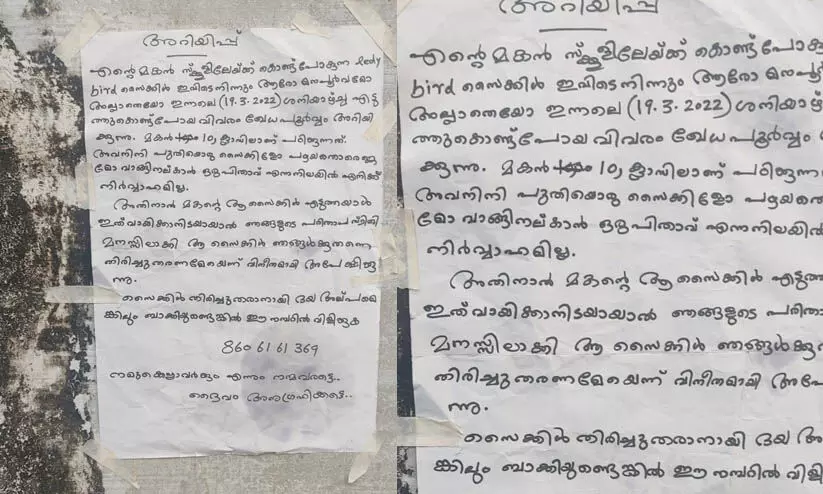 അറിയിപ്പ്
എന്റെ മകൻ സ്ക്കൂളിലേയ്ക്ക് കൊണ്ട്പോകുന്ന ledy
bird സൈക്കിൾ ഇവിടെനിന്നും ആരോ മനപ്പൂർവമോ
അല്ലാതെയോ ഇന്നലെ (19.3.2022) ശനിയാഴ്ച്ച എടു
ത്തുകൊണ്ട്പോയ വിവരം ഖേധപൂർവ്വം അറിയി
ക്കുന്നു. മകൻ 10, ക്ലാസിലാണ് പഠിയ്ക്കുന്നത്.
അവനിനി പുതിയൊരു സൈക്കിളോ പഴയതൊരെണ്ണ
മോ വാങ്ങിനല്കാൻ ഒരുപിതാവ് എന്നനിലയിൽ എനിക്ക്
നിർവ്വാഹമില്ല.
അതിനാൽ മകന്റെ ആ സൈക്കിൾ എടുത്തയാൾ
ഇത് വായിക്കാനിടയായാൽ ഞങ്ങളുടെ പരിതാപസ്ഥിതി
മനസ്സിലാക്കി ആ സൈക്കിൾ ഞങ്ങൾക്കുതന്നെ
തിരിച്ചു തരണമേയെന്ന് വിനീതമായി അപേക്ഷിക്കു
ന്നു.
സൈക്കിൾ തിരിച്ചുതരാനായി ദയ അല്പമെ
ങ്കിലും ബാക്കിയുണ്ടെങ്കിൽ ഈ നമ്പറിൽ വിളിക്കുക
860 61 61 369
നമുക്കെല്ലാവർക്കും എന്നും നന്മവരട്ടെ..
ദൈവം അനുഗ്രഹിക്കട്ടെ..
അറിയിപ്പ്
എന്റെ മകൻ സ്ക്കൂളിലേയ്ക്ക് കൊണ്ട്പോകു
bird സൈക്കിൾ ഇവിടെനിന്നും ആരോ മനപ്പൂർ
അല്ലാതെയോ ഇന്നലെ (19.3.2022) ശനിയാഴ്
ത്തുകൊണ്ട്പോയ വിവരം ഖേധപൂർവ്വം
ക്കുന്നു. മകൻ 10, ക്ലാസിലാണ് പഠിയ്ക്കുന്ന
അവനിനി പുതിയൊരു സൈക്കിളോ പഴയതൊ
മോ വാങ്ങിനല്കാൻ ഒരുപിതാവ് എന്നനിലയിൽ
നിർവ്വാഹമില്ല.
അതിനാൽ മകന്റെ ആ സൈക്കിൾ എടുത്ത
ഇത് വായിക്കാനിടയായാൽ ഞങ്ങളുടെ പരിതാ
മനസ്സിലാക്കി ആ സൈക്കിൾ ഞങ്ങൾക്കു
തിരിച്ചു തരണമേയെന്ന് വിനീതമായി അപേ
ന്നു.
സൈക്കിൾ തിരിച്ചുതരാനായി ദയ അ
ങ്കിലും ബാക്കിയുണ്ടെങ്കിൽ ഈ നമ്പറിൽ വിളി